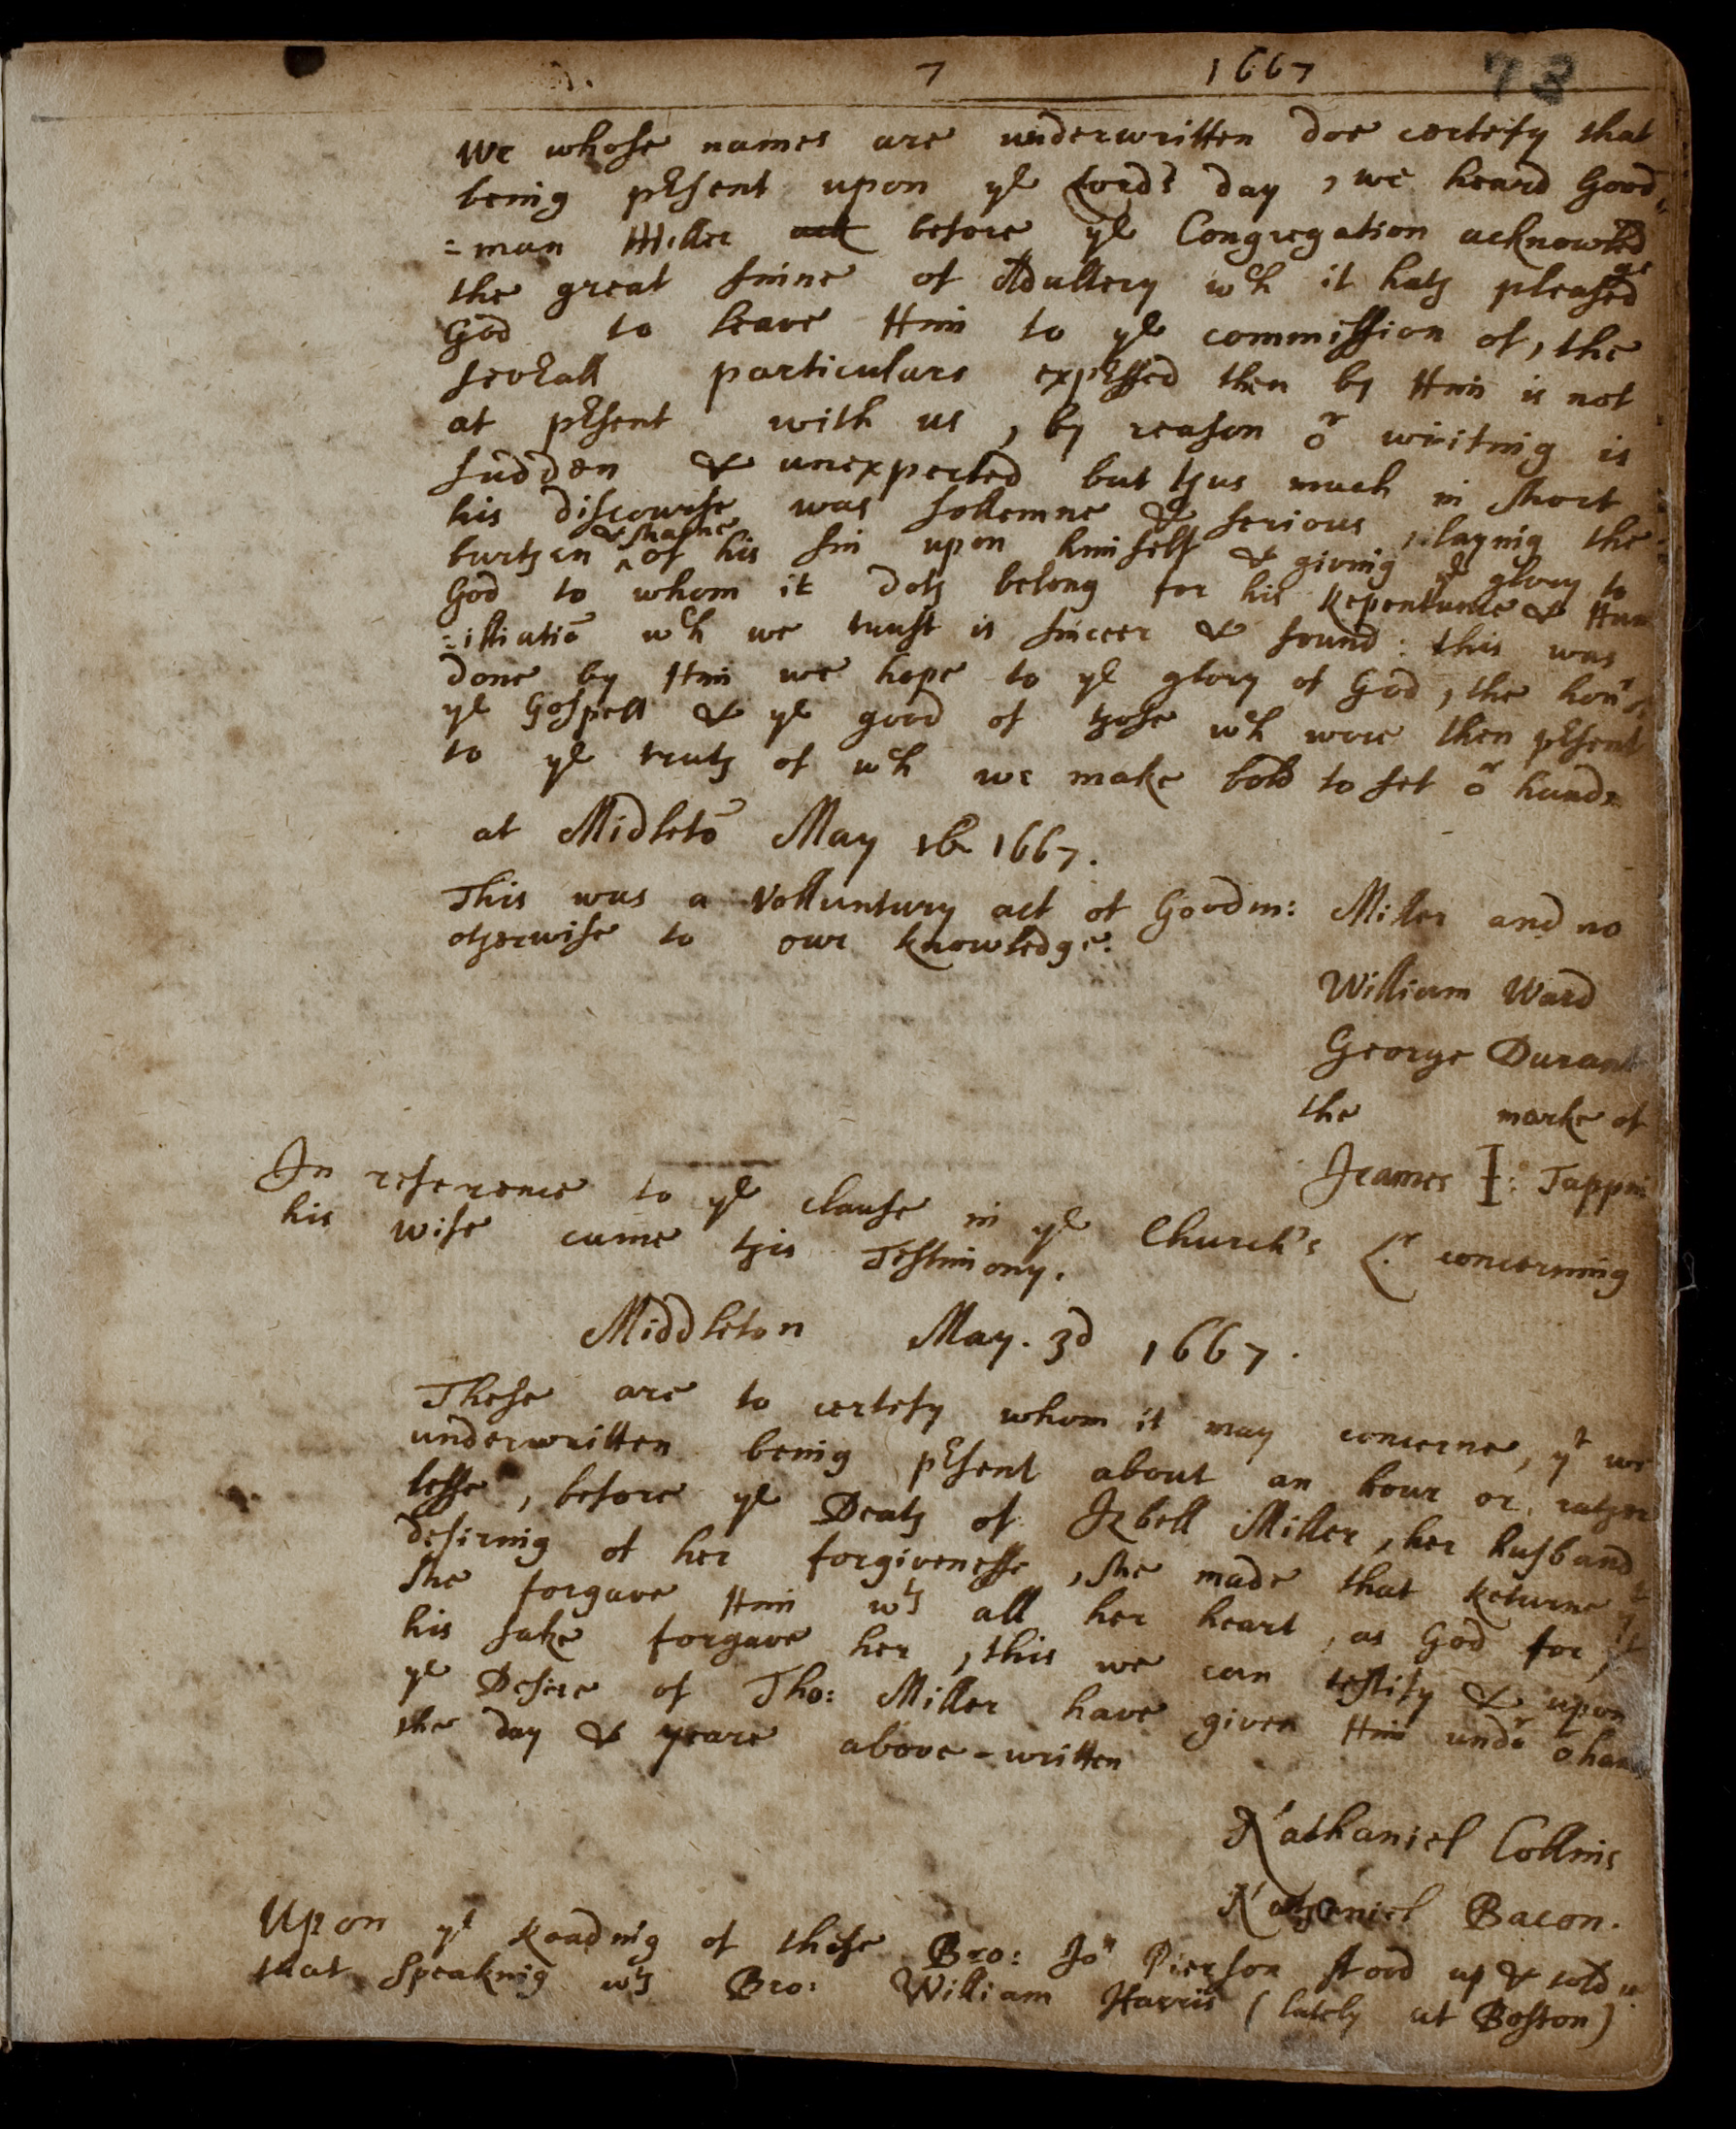 7 1667 73
We whose names are underwritten doe certefy that
being p͛sent upon ye Lord's day, we heard Good
=man Miller ack before ye Congregation acknowledge
the great sinne of Adultery wch it hath pleased
God to leave Him to ye commission of, the
sev͛all particulars exp͛ssed then by Him is not
at p͛sent with us, by reason or writing is
sudden & unexpected but thus much in short
his discourse was sollemne & serious, laynig the
& shame
burthen ^ of his sin upon himself & giving ye glory to
God to whom it doth belong for his Repentance & Hum
=illiatiō wch we trust is sinceer & sound: this was
done by Him we hope to ye glory of God, the honr of
ye Gospell & ye good of those wch were then p͛sent
to ye truth of wch we make bold to set or hands
at Midletō May 16 1667.
This was a Volluntary act of Goodm: Miller and no
otherwise to our knowledge.
William Ward
George Durant
the marke of
Jeames I: Tappin
In reference to ye clause in ye Church's Lr. concerning
his wife came this Testimony.
Middleton May. 3d 1667.
These are to certefy whom it may concerne, yt we
underwritten being p͛sent about an hour or rather
lesse, before ye Death of Izbell Miller, her husband
desiring of her forgivenesse, she made that Returne yt
She forgave Him wth all her heart, as God for
his sake forgave her, this we can testify & upon
ye Desire of Tho: Miller have given Him undr or han
the day & yeare above-written
Nathaniel Collins
Nathaniel Bacon.
Upon ye Reading of these Bro: Jon Pierson stood up & told us
that Speaking wth Bro: William Harris (lately at Boston)